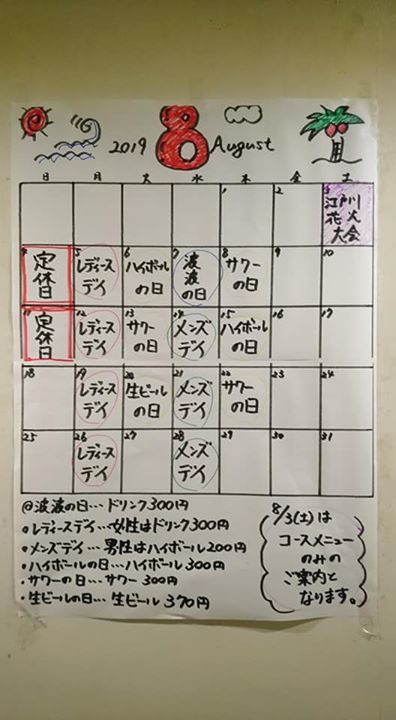 2019 8 August
日 月 火 水 木 金 土
1 2 3
江戸川
花火
大会
4 5 6 7 8 9 10
定休日 レディースデイ ハイボールの日 波波の日 サワーの日
11 12 13 14 15 16 17
定休日 レディースデイ サワーの日 メンズデイ ハイボールの日
18 19 20 21 22 23 24
レディースデイ 生ビールの日 メンズデイ サワーの日
25 26 27 28 29 30 31
レディースデイ メンズデイ
@波波の日…ドリンク300円
・レディースデイ…女性はドリンク300円
・メンズデイ…男性はハイボール200円
・ハイボールの日…ハイボール300円
・サワーの日…サワー300円
・生ビールの日…生ビール370円
8/3(土)は
コースメニュー
のみの
ご案内と
なります。